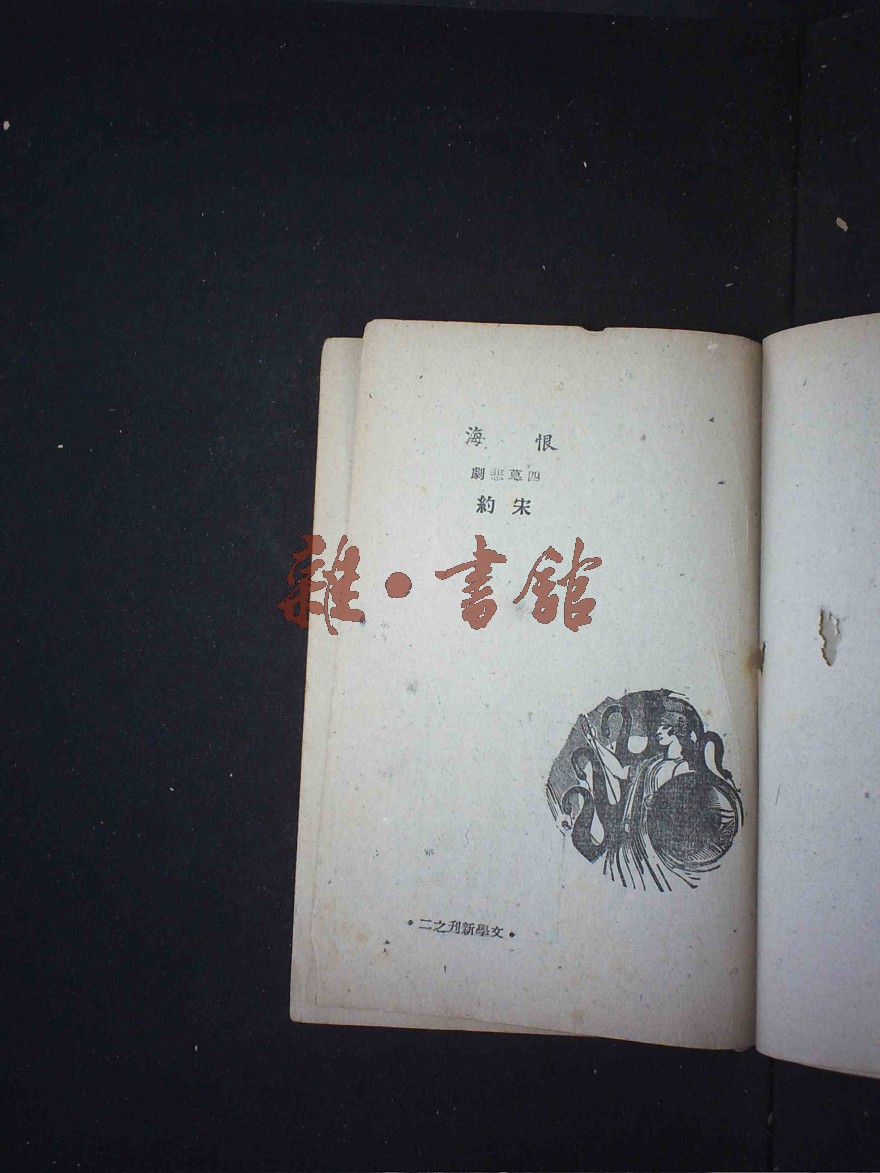 恨海
四幕悲劇
宋約
雜·書館
·文學新刊之二·